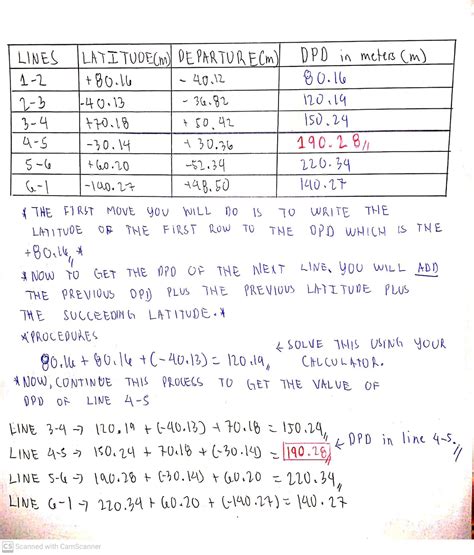 LINES LATITUDE(m) DEPARTURE(m) DPD in meters (m)
1-2 +80.16 -40.12 80.16
2-3 -40.13 -36.82 120.19
3-4 +70.18 +50.42 150.24
4-5 -30.14 +30.36 190.28
5-6 +60.20 -52.34 220.34
6-1 -140.27 +48.50 140.27
* THE FIRST MOVE YOU WILL DO IS TO WRITE THE
LATITUDE OF THE FIRST ROW TO THE DPD WHICH IS THE
+80.16 *
* NOW TO GET THE DPD OF THE NEXT LINE, YOU WILL ADD
THE PREVIOUS DPD PLUS THE PREVIOUS LATITUDE PLUS
THE SUCCEEDING LATITUDE. *
* PROCEDURES
80.16 + 80.16 + (-40.13) = 120.19 ← SOLVE THIS USING YOUR
CALCULATOR.
* NOW, CONTINUE THIS PROCESS TO GET THE VALUE OF
DPD OF LINE 4-5
LINE 3-4 → 120.19 + (-40.13) + 70.18 = 150.24
LINE 4-5 → 150.24 + 70.18 + (-30.14) = 190.28 ← DPD in line 4-5.
LINE 5-6 → 190.28 + (-30.14) + 60.20 = 220.34
LINE 6-1 → 220.34 + 60.20 + (-140.27) = 140.27
CS Scanned with CamScanner